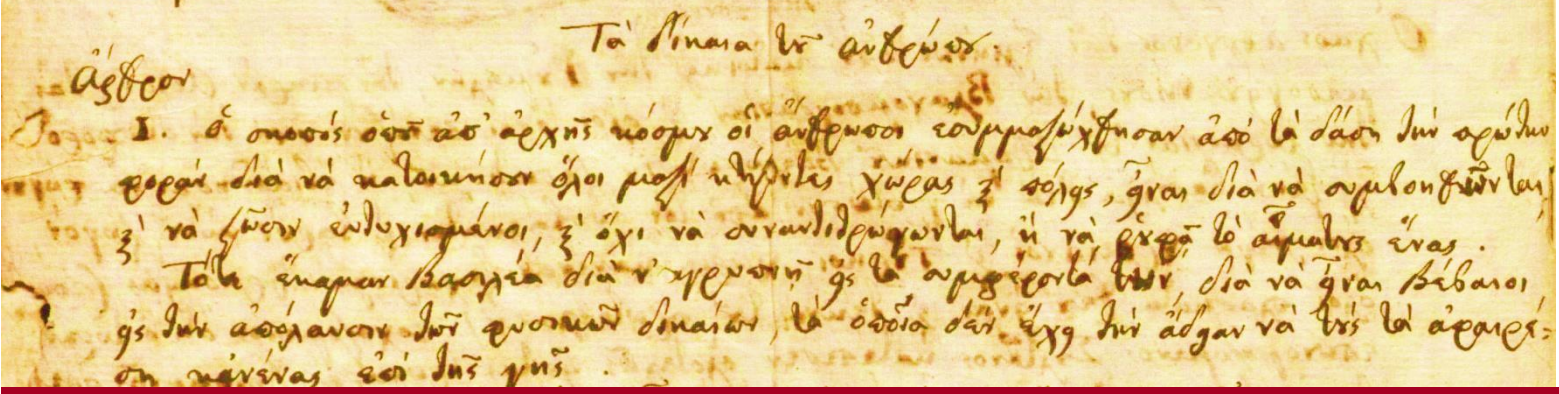 Τὰ δίκαια τοῦ ἀνθρώπου.
Ἄρθρον
1. Ὁ σκοπὸς ὁποῦ ἀπ' ἀρχῆς κόσμου οἱ ἄνθρωποι ἐσυμμαζώχθησαν ἀπὸ τὰ δάση τὴν πρώτην
φορὰν διὰ νὰ κατοικήσουν ὅλοι μαζὶ κτίζοντες χώρας καὶ πόλεις, εἶναι διὰ νὰ συμβοηθῶνται
καὶ νὰ ζῶσιν εὐτυχισμένοι, καὶ ὄχι νὰ συναντιτρώγωνται, ἢ νὰ ῥουφᾷ τὸ αἷμα τους ἕνας.
Τότε ἔκαμαν Βασιλέα διὰ ν' ἀγρυπνῇ εἰς τὰ συμφέροντά των, διὰ νὰ εἶναι βέβαιοι
εἰς τὴν ἀπόλαυσιν τῶν φυσικῶν δικαίων, τὰ ὁποῖα δὲν ἔχει τὴν ἄδειαν νὰ τοὺς τὰ ἀφαιρέ-
σῃ κᾀνένας ἐπὶ τῆς γῆς.